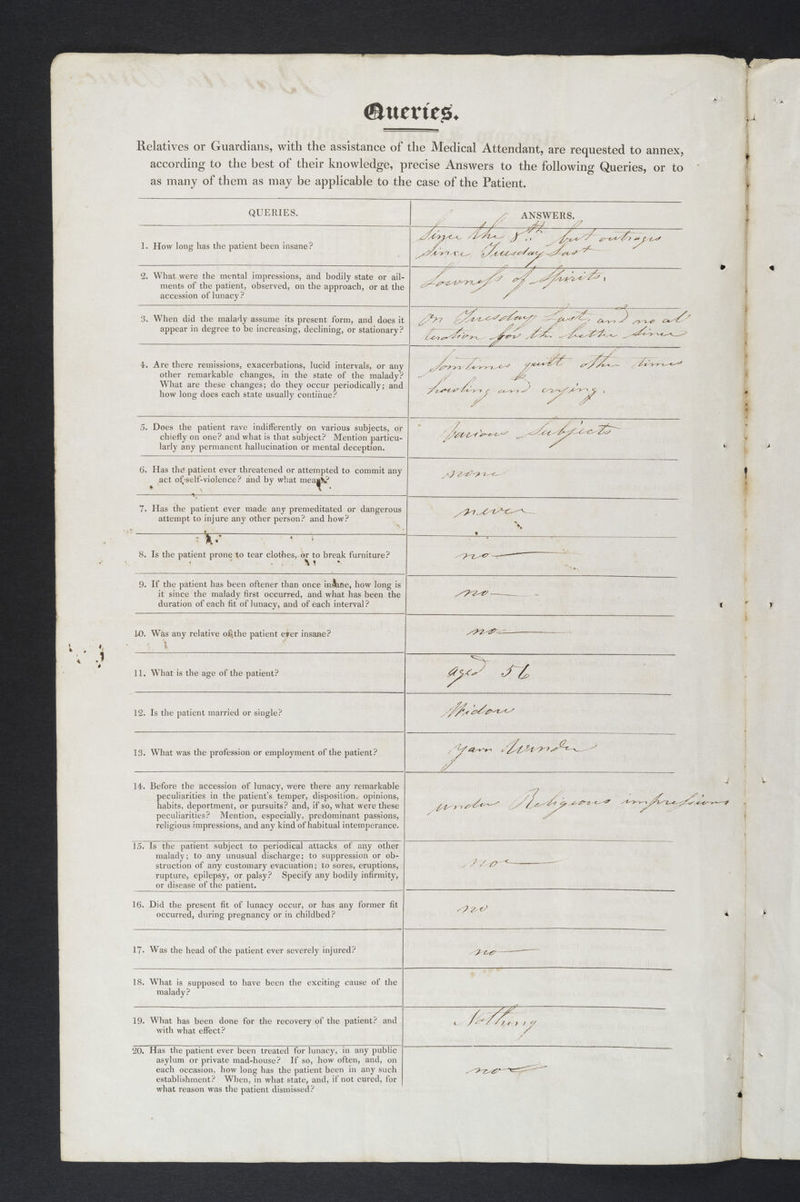 Queries.
Relatives or Guardians, with the assistance of the Medical Attendant, are requested to annex,
according to the best of their knowledge, precise Answers to the following Queries, or to
as many of them as may be applicable to the case of the Patient.
QUERIES.
ANSWERS.
1. How long has the patient been insane?
Since the 8th but outrages
Since Tuesday Last
2. What were the mental impressions, and bodily state or ail-
ments of the patient, observed, on the approach, or at the
accession of lunacy?
Lowness of Spirits.
3. When did the malady assume its present form, and does it
appear in degree to be increasing, declining, or stationary?
On Tuesday Last, and no al
teration for the better Since
4. Are there remissions, exacerbations, lucid intervals, or any
other remarkable changes, in the state of the malady?
What are these changes; do they occur periodically; and
how long does each state usually continue?
Somtimes quitt other times
howling and crying.
5. Does the patient rave indifferently on various subjects, or
chiefly on one? and what is that subject? Mention particu-
larly any permanent hallucination or mental deception.
Various Subjects
6. Has the patient ever threatened or attempted to commit any
act of self-violence? and by what means?
none
7. Has the patient ever made any premeditated or dangerous
attempt to injure any other person? and how?
never
8. Is the patient prone to tear clothes, or to break furniture?
no
9. If the patient has been oftener than once insane, how long is
it since the malady first occurred, and what has been the
duration of each fit of lunacy, and of each interval?
no
10. Was any relative of the patient ever insane?
no
11. What is the age of the patient?
aged 56
12. Is the patient married or single?
Widow
13. What was the profession or employment of the patient?
Yarn Winder
14. Before the accession of lunacy, were there any remarkable
peculiarities in the patient's temper, disposition, opinions,
habits, deportment, or pursuits? and, if so, what were these
peculiarities? Mention, especially, predominant passions,
religious impressions, and any kind of habitual intemperance.
under Religious impressions
15. Is the patient subject to periodical attacks of any other
malady; to any unusual discharge; to suppression or ob-
struction of any customary evacuation; to sores, eruptions,
rupture, epilepsy, or palsy? Specify any bodily infirmity,
or disease of the patient.
no
16. Did the present fit of lunacy occur, or has any former fit
occurred, during pregnancy or in childbed?
no
17. Was the head of the patient ever severely injured?
no
18. What is supposed to have been the exciting cause of the
malady?
19. What has been done for the recovery of the patient? and
with what effect?
Nothing
20. Has the patient ever been treated for lunacy, in any public
asylum or private mad-house? If so, how often, and, on
each occasion, how long has the patient been in any such
establishment? When, in what state, and, if not cured, for
what reason was the patient dismissed?
no